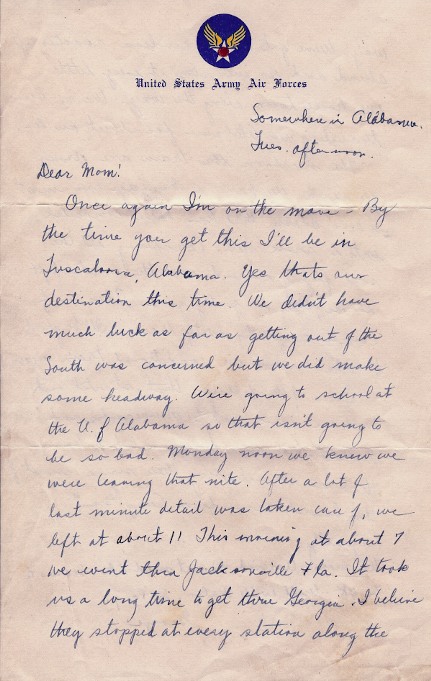 United States Army Air Forces
Somewhere in Alabama.
Tues. afternoon.
Dear Mom!
Once again I'm on the move - By
the time you get this I'll be in
Tuscaloosa, Alabama. Yes thats our
destination this time. We didn't have
much luck as far as getting out of the
South was concerned but we did make
some headway. We're going to school at
the U. of Alabama so that isn't going to
be so bad. Monday noon we knew we
were leaving that nite. After a lot of
last minute detail was taken care of, we
left at about 11 This morning at about 7
we went thru Jacksonville Fla. It took
us a long time to get thru Georgia. I believe
they stopped at every station along the